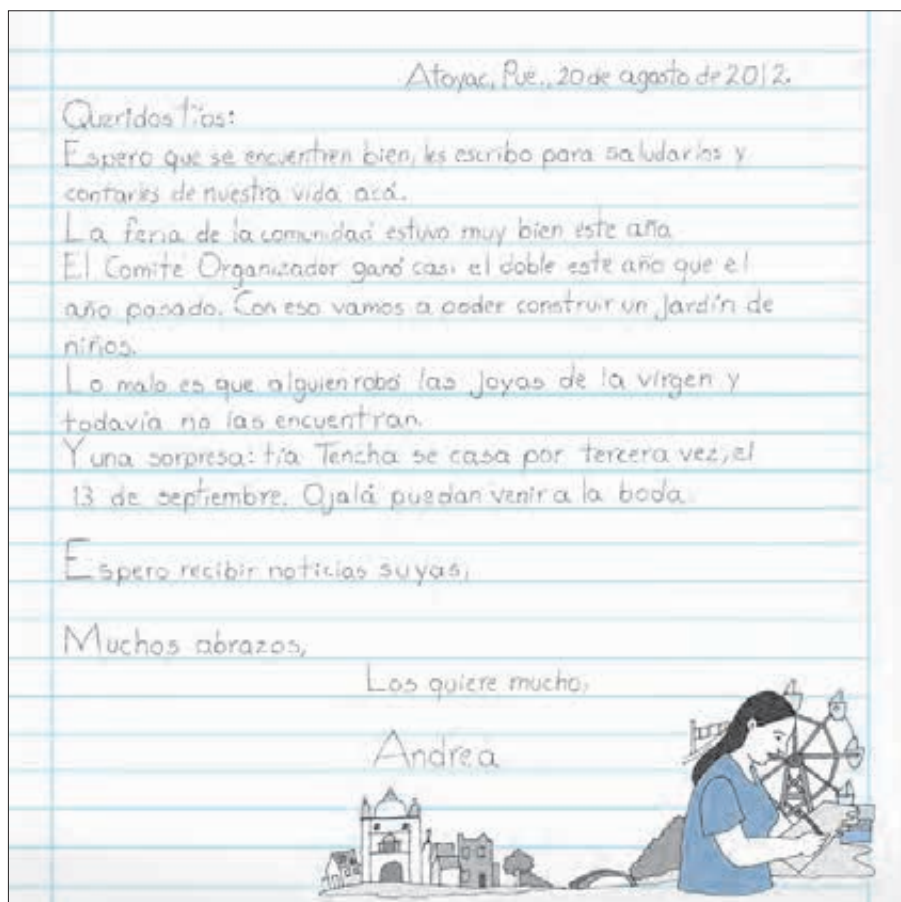 Atoyac, Pue., 20 de agosto de 2012.
Queridos tíos:
Espero que se encuentren bien, les escribo para saludarlos y
contarles de nuestra vida acá.
La feria de la comunidad estuvo muy bien este año
El Comité Organizador ganó casi el doble este año que el
año pasado. Con eso vamos a poder construir un jardín de
niños.
Lo malo es que alguien robó las joyas de la virgen y
todavía no las encuentran.
Y una sorpresa: tía Tencha se casa por tercera vez, el
13 de septiembre. Ojalá puedan venir a la boda.
Espero recibir noticias suyas,
Muchos abrazos,
Los quiere mucho,
Andrea